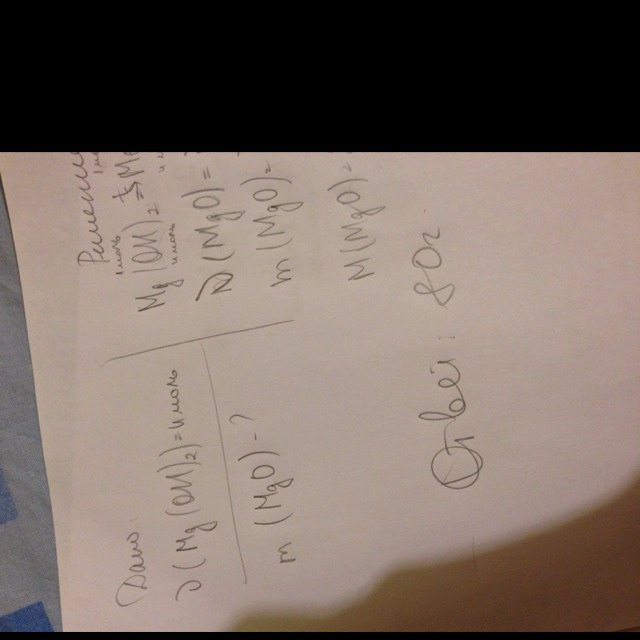 Дано:
ν(Mg(OH)2)=4моль
m(MgO)-?
Решение
4моль
Mg(OH)2 
4моль
ν(MgO)=
m(MgO)=
M(MgO)=
Ответ: 80г.